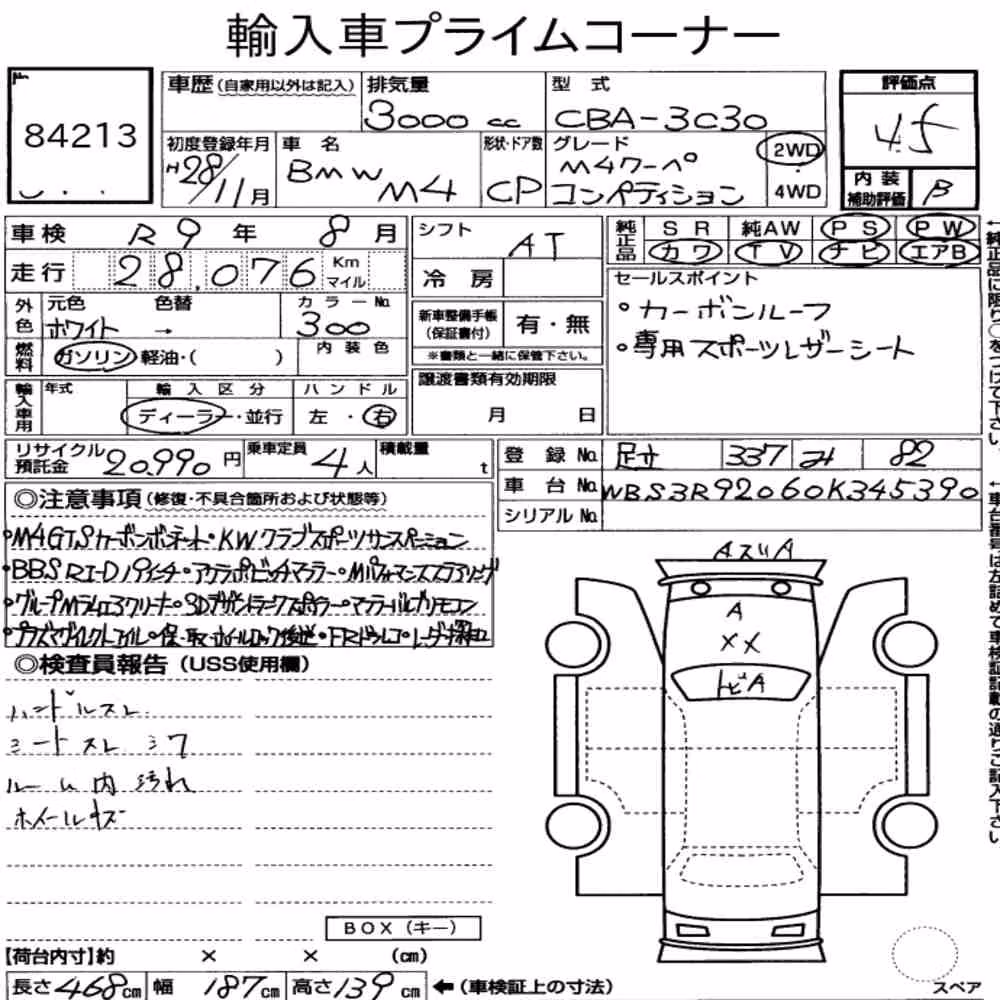 輸入車プライムコーナー
84213
車歴(自家用以外は記入) 排気量 3000 cc 型式 CBA-3C30
評価点 4.5
初度登録年月 H28/11月 車名 BMW M4 形状・ドア数 CP グレード M4クーペ コンペティション 2WD 4WD
内装補助評価 B
車検 R9年 8月
走行 28,076 Km マイル
シフト AT
冷房
純正品 SR 純AW PS PW
カワ TV ナビ エアB
セールスポイント
・カーボンルーフ
・専用スポーツレザーシート
外色 元色 ホワイト 色替 → カラーNo. 300
燃料 ガソリン 軽油・( ) 内装色
新車整備手帳(保証書付) 有・無
※書類と一緒に保管下さい。
輸入車用 年式 輸入区分 ディーラー・並行 ハンドル 左・右
譲渡書類有効期限 月 日
リサイクル預託金 20,990円 乗車定員 4人 積載量 t
登録No. 足立 337 み 82
車台No. WBS3R92060K345390
シリアルNo.
◎注意事項(修復・不具合箇所および状態等)
・M4GTSカーボンボンネット・KWクラブスポーツサスペンション
・BBS RI-D 19インチ・アクラポビッチマフラー・Mパフォーマンスステアリング
・グループM ラムエアクリーナー・3Dデザイントランクスポイラー・マフラーバルブリモコン
・プラズマダイレクトコイル・保・取・ホイールロック後送・FRドラレコ・レーダー探知
◎検査員報告(USS使用欄)
ハンドルスレ
シートスレ シワ
ルーム内 汚れ
ホイールキズ
AスリA
A
××
トビA
BOX(キー)
【荷台内寸】約 × × (cm)
長さ468cm 幅187cm 高さ139cm ←(車検証上の寸法)
スペア
←純正品に限り○をつけて下さい。
←車台番号は左詰めで車検証記載の通りご記入下さい